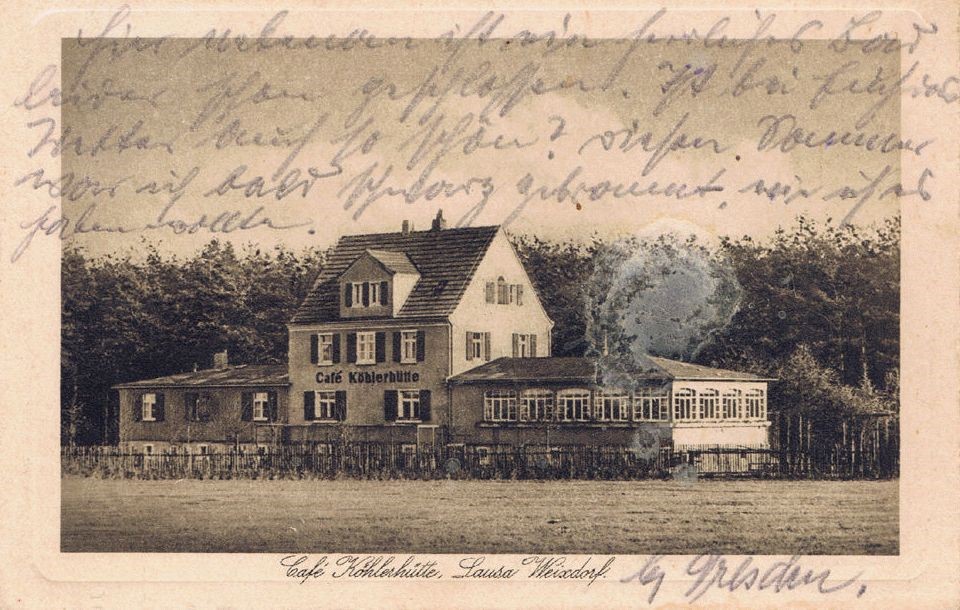 Hier nebenan ist ein herrliches Bad
leider schon geschlossen. Ist bei Euch das
Wetter auch so schön? diesen Sommer
war ich bald schwarz gebrannt, wie ich es
haben wollte.
Café Köhlerhütte
Café Köhlerhütte, Lausa Weixdorf. b/ Dresden.